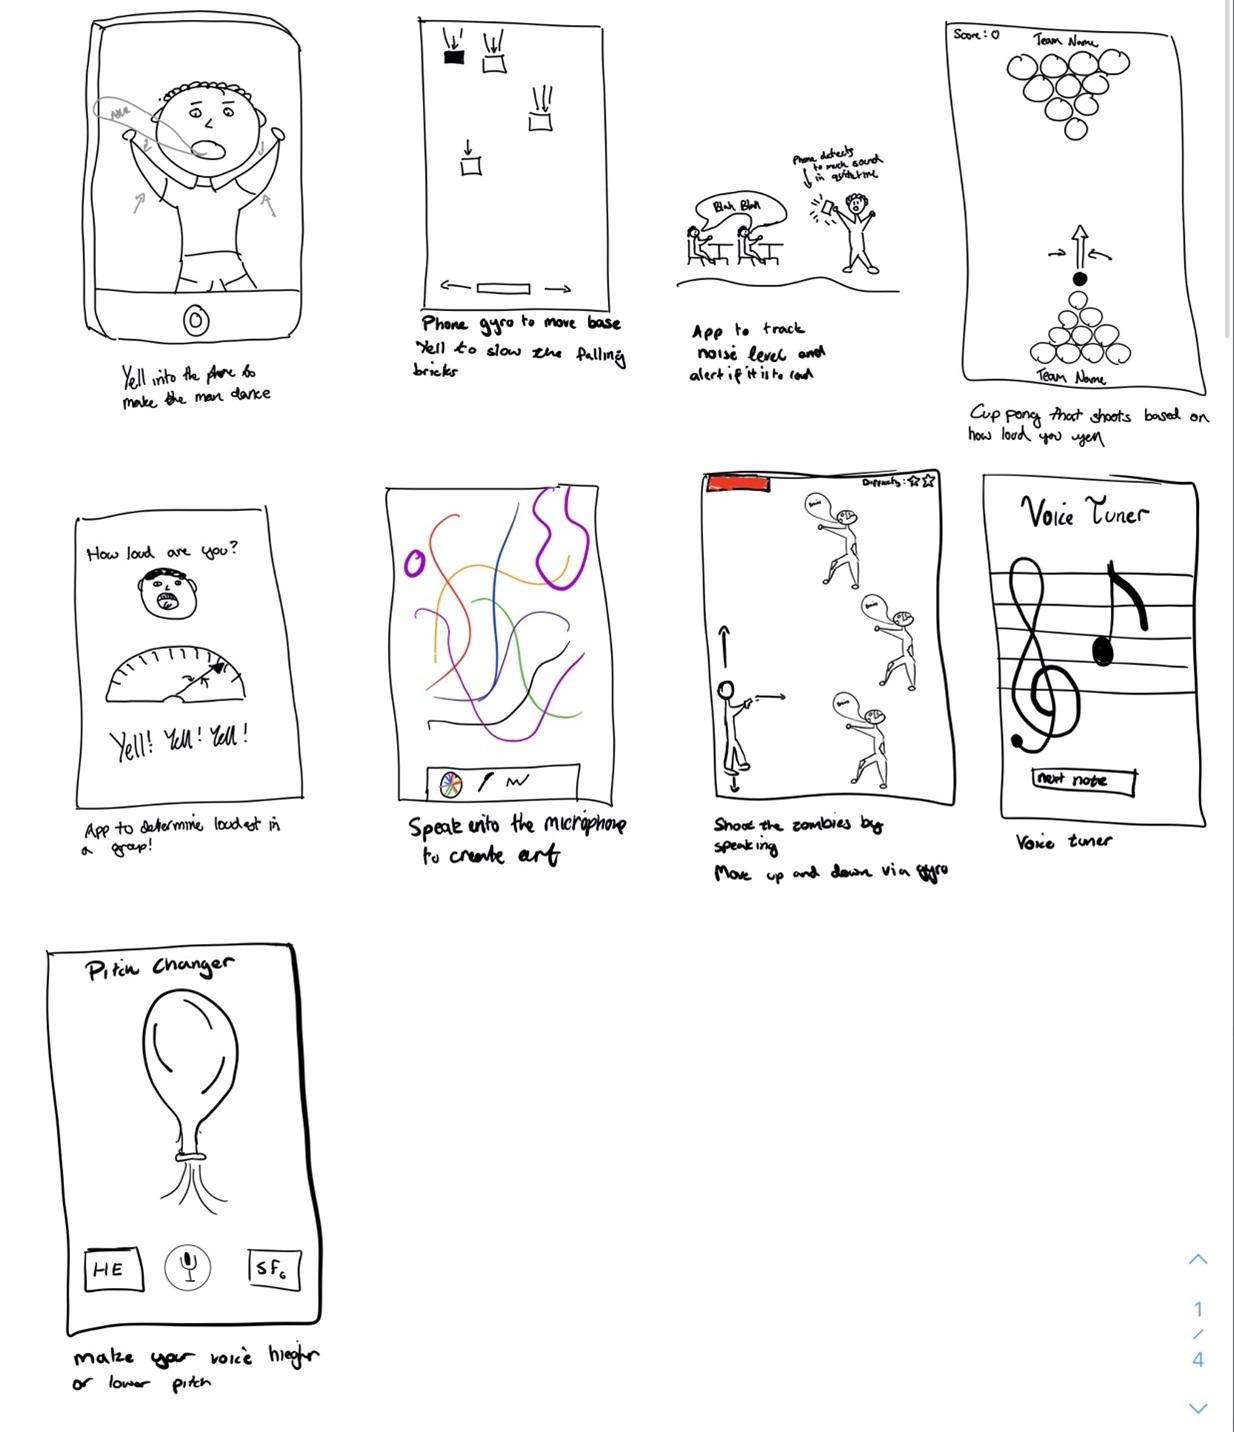 AAA
Yell into the phone to
make the man dance
Phone gyro to move base
Yell to slow the falling
bricks
Blah Blah
Phone detects
to much sound
in
App to track
noise level and
alert if it is to loud
Score: 0
Team Name
Team Name
Cup pong that shoots based on
how loud you yell
How loud are you?
Yell! Yell! Yell!
App to determine loudest in
a group!
Speak into the microphone
to create art
Difficulty:
Shoot the zombies by
speaking
Move up and down via gyro
Voice Tuner
next note
Voice tuner
Pitch Changer
HE
SF6
make your voice hiegher
or lower pitch
1
/
4